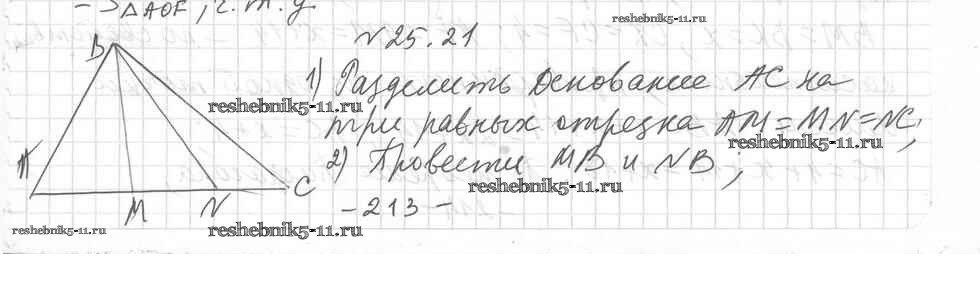 - S△AOF, ч.т.д.
reshebnik5-11.ru
№25.21
B
1) Разделить основание AC на
reshebnik5-11.ru
три равных отрезка AM=MN=NC,
reshebnik5-11.ru
2) Провести MB и NB;
reshebnik5-11.ru
A
C
M
N
-213-
reshebnik5-11.ru
reshebnik5-11.ru